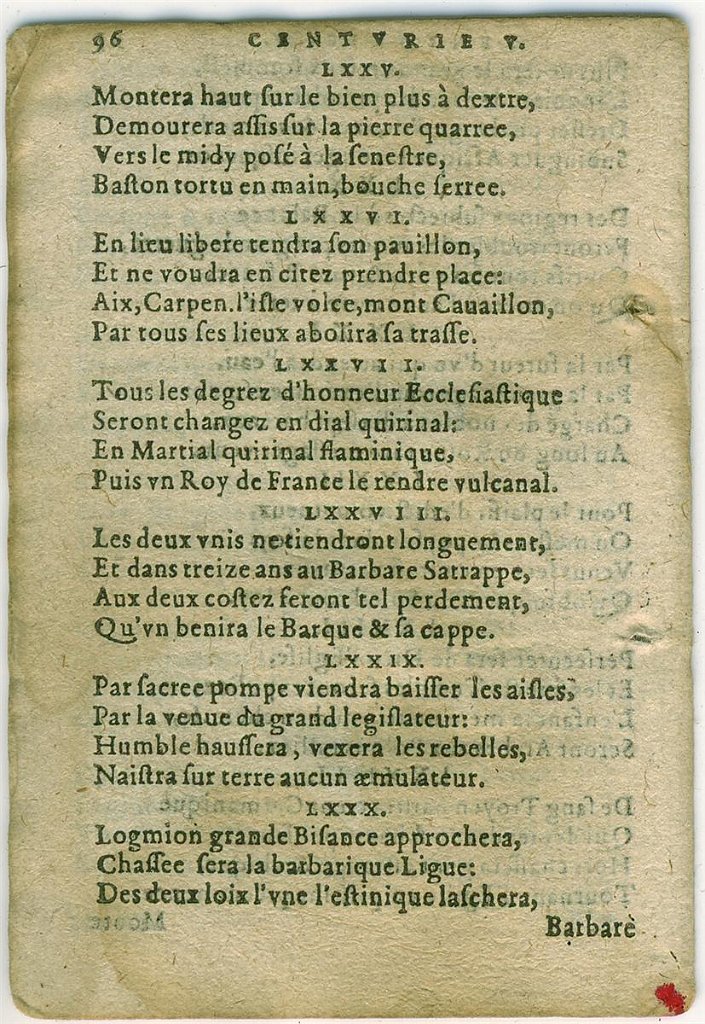 96 CENTVRIE V.
LXXV.
Montera haut ſur le bien plus à dextre,
Demourera aſſis ſur la pierre quarree,
Vers le midy poſé à la feneſtre,
Baſton tortu en main, bouche ſerree.
LXXVI.
En lieu libere tendra ſon pauillon,
Et ne voudra en citez prendre place:
Aix, Carpen. l'iſle volce, mont Cauaillon,
Par tous ſes lieux abolira ſa traſſe.
LXXVII.
Tous les degrez d'honneur Eccleſiaſtique
Seront changez en dial quirinal:
En Martial quirinal flaminique,
Puis vn Roy de France le rendre vulcanal.
LXXVIII.
Les deux vnis ne tiendront longuement,
Et dans treize ans au Barbare Satrappe,
Aux deux coſtez feront tel perdement,
Qu'vn benira le Barque & ſa cappe.
LXXIX.
Par ſacree pompe viendra baiſſer les aiſles,
Par la venue du grand legiſlateur:
Humble hauſſera, vexera les rebelles,
Naiſtra ſur terre aucun æmulateur.
LXXX.
Logmion grande Biſance approchera,
Chaſſee ſera la barbarique Ligue:
Des deux loix l'vne l'eſtinique laſchera,
Barbare